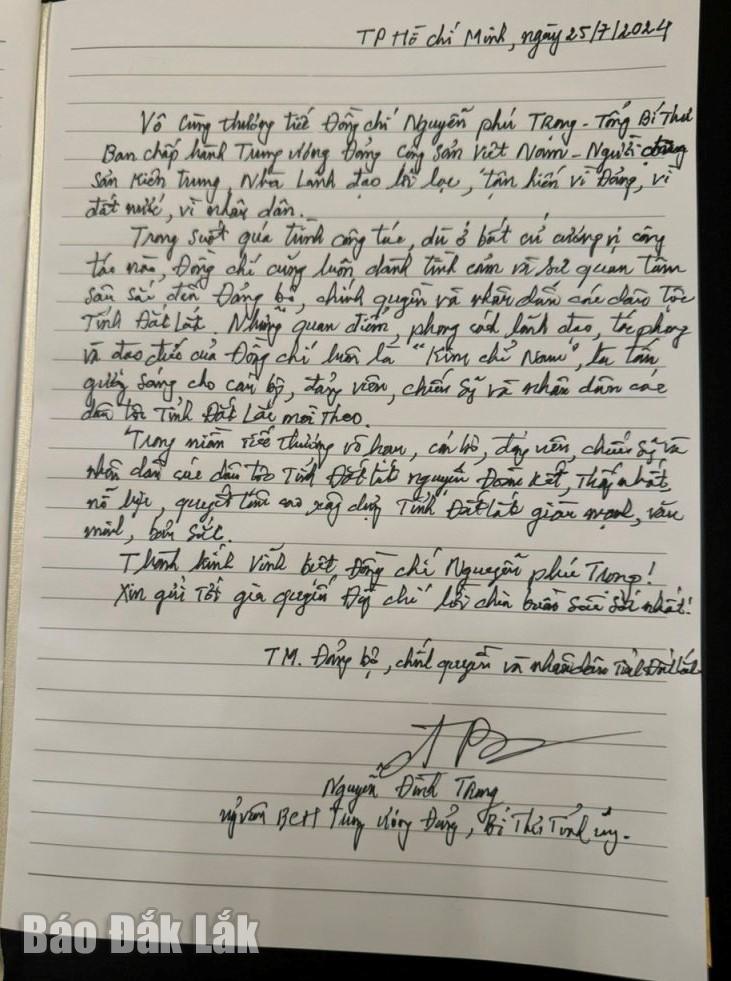 TP Hồ Chí Minh, ngày 25/7/2024
Vô cùng thương tiếc Đồng chí Nguyễn Phú Trọng - Tổng Bí Thư
Ban chấp hành Trung ương Đảng Cộng Sản Việt Nam - Người cộng
sản kiên trung, Nhà Lãnh đạo lỗi lạc, tận hiến vì Đảng, vì
đất nước, vì nhân dân.
Trong suốt quá trình công tác, dù ở bất cứ cương vị công
tác nào, Đồng chí cũng luôn dành tình cảm và sự quan tâm
sâu sắc đến Đảng bộ, chính quyền và nhân dân các dân tộc
Tỉnh Đắk Lắk. Những quan điểm, phong cách lãnh đạo, tác phong
và đạo đức của Đồng chí luôn là "Kim chỉ Nam", là tấm
gương sáng cho cán bộ, đảng viên, chiến sỹ và nhân dân các
dân tộc Tỉnh Đắk Lắk noi theo.
Trong niềm tiếc thương vô hạn, cán bộ, đảng viên, chiến sỹ và
nhân dân các dân tộc Tỉnh Đắk Lắk nguyện Đoàn kết, Thống nhất,
nỗ lực, quyết tâm cao xây dựng Tỉnh Đắk Lắk giàu mạnh, văn
minh, bản sắc.
Thành kính Vĩnh biệt Đồng chí Nguyễn Phú Trọng!
Xin gửi Tới gia quyến Đồng chí lời chia buồn sâu sắc nhất!
TM. Đảng bộ, chính quyền và nhân dân Tỉnh Đắk Lắk
Nguyễn Đình Trung
Ủy viên BCH Trung ương Đảng, Bí Thư Tỉnh ủy.
Báo Đắk Lắk